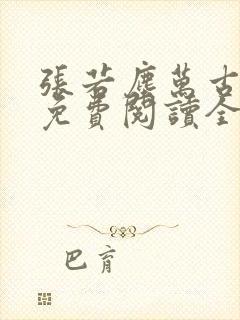 張若塵萬古
免費閱讀全
巴育